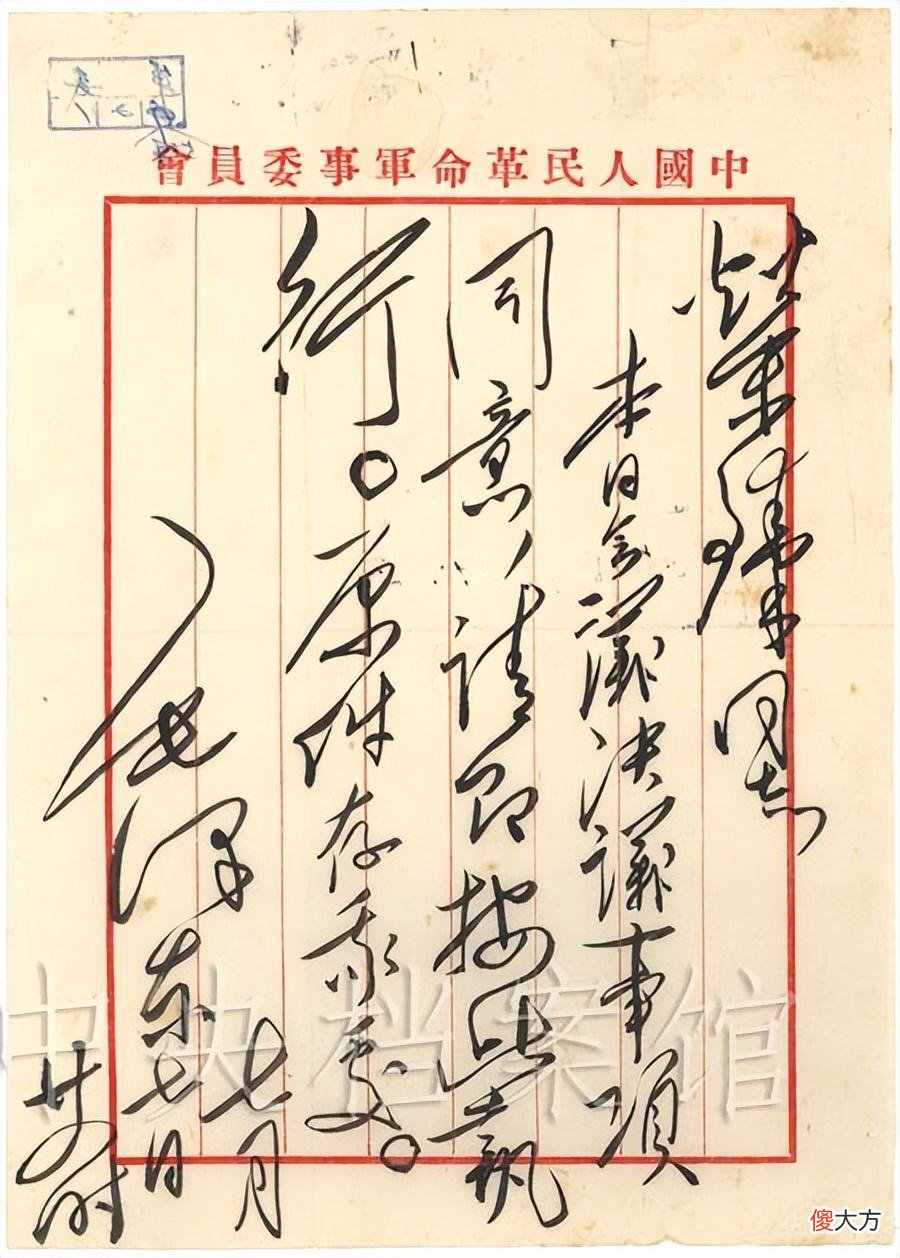 中國人民革命軍事委員會
榮臻同志
本日会議决議事項
同意,请即按此執
行。原件存我處。
毛泽东
七月
七日
廿四时
中央档案馆
傻大方